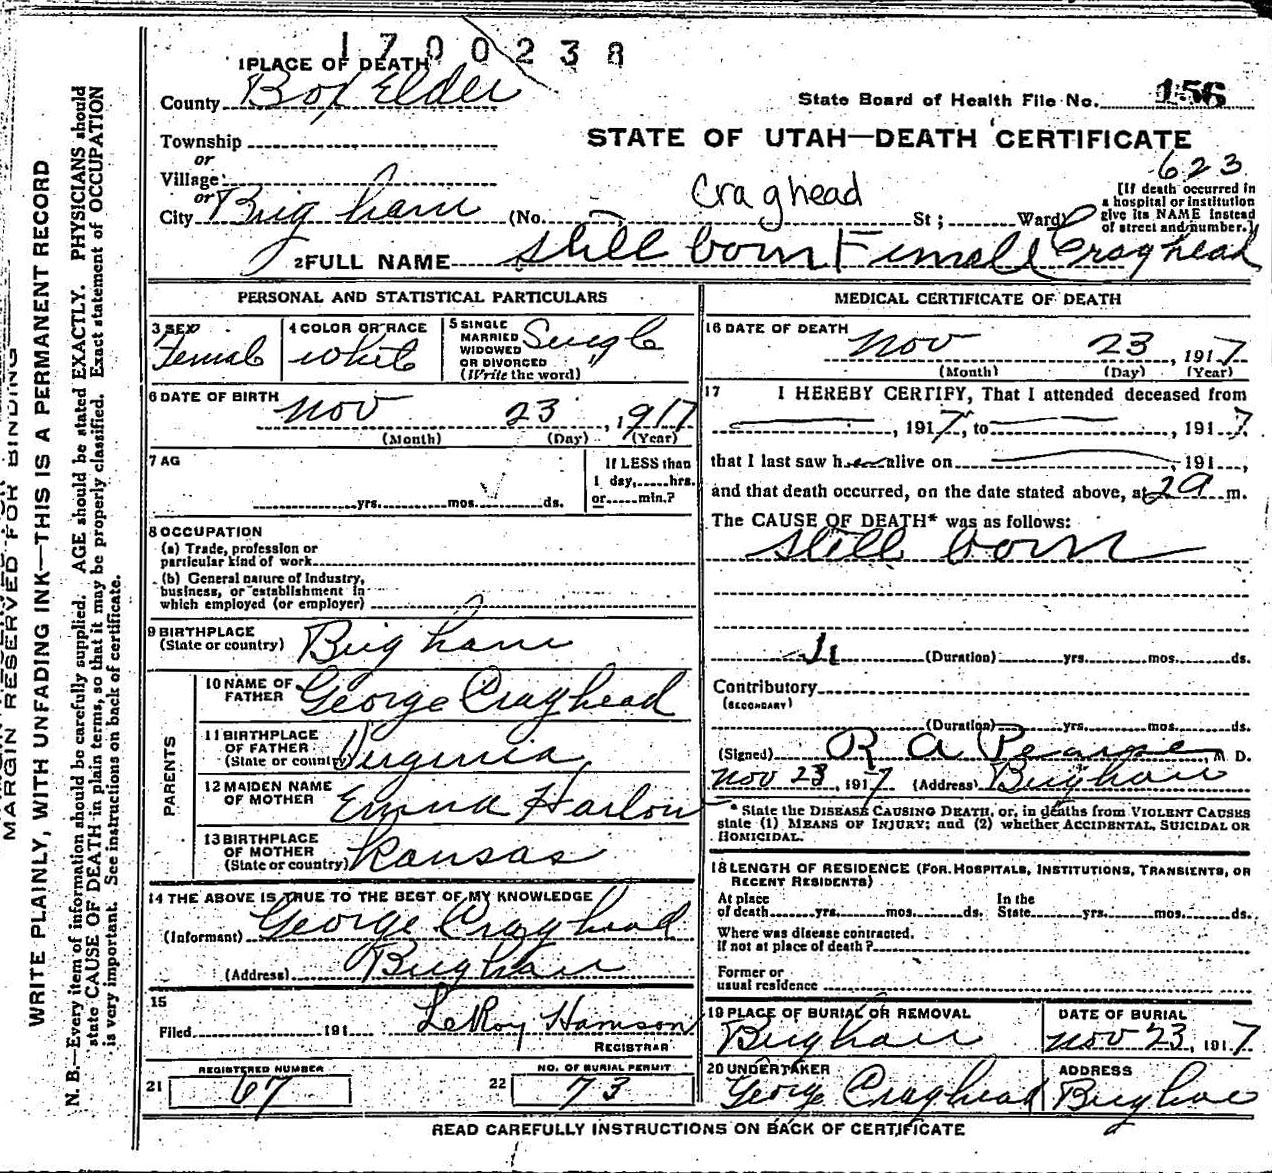 1700238
1 PLACE OF DEATH
County Box Elder
State Board of Health File No. 156
Township
or
STATE OF UTAH—DEATH CERTIFICATE
Village
623
or
City Brigham (No. St; Ward)
Craghead
[If death occurred in a hospital or institution give its NAME instead of street and number.]
2 FULL NAME still born Femall Craghead
PERSONAL AND STATISTICAL PARTICULARS
3 SEX Female
4 COLOR OR RACE white
5 SINGLE MARRIED WIDOWED OR DIVORCED (Write the word) Single
6 DATE OF BIRTH Nov 23, 1917
(Month) (Day) (Year)
7 AG
yrs. mos. ds.
If LESS than 1 day, hrs. or min.?
8 OCCUPATION
(a) Trade, profession or particular kind of work
(b) General nature of Industry, business, or establishment in which employed (or employer)
9 BIRTHPLACE (State or country) Brigham
PARENTS
10 NAME OF FATHER George Craghead
11 BIRTHPLACE OF FATHER (State or country) Virginia
12 MAIDEN NAME OF MOTHER Emma Harlow
13 BIRTHPLACE OF MOTHER (State or country) Kansas
14 THE ABOVE IS TRUE TO THE BEST OF MY KNOWLEDGE
(Informant) George Craghead
(Address) Brigham
15
Filed 191 LeRoy Hamson
REGISTRAR
21 REGISTERED NUMBER 67
22 NO. OF BURIAL PERMIT 73
MEDICAL CERTIFICATE OF DEATH
16 DATE OF DEATH Nov 23, 1917
(Month) (Day) (Year)
17 I HEREBY CERTIFY, That I attended deceased from
, 1917, to , 1917
that I last saw h alive on , 191 ,
and that death occurred, on the date stated above, at m.
The CAUSE OF DEATH* was as follows:
still born
(Duration) yrs. mos. ds.
Contributory
(SECONDARY)
(Duration) yrs. mos. ds.
(Signed) R A Pearse, M D.
Nov 23, 1917 (Address) Brigham
* State the DISEASE CAUSING DEATH, or, in deaths from VIOLENT CAUSES
state (1) MEANS OF INJURY; and (2) whether ACCIDENTAL, SUICIDAL OR
HOMICIDAL.
18 LENGTH OF RESIDENCE (FOR HOSPITALS, INSTITUTIONS, TRANSIENTS, OR
RECENT RESIDENTS)
At place of death yrs. mos. ds. In the State yrs. mos. ds.
Where was disease contracted.
If not at place of death?
Former or usual residence
19 PLACE OF BURIAL OR REMOVAL Brigham
DATE OF BURIAL Nov 23, 1917
20 UNDERTAKER George Craghead
ADDRESS Brigham
READ CAREFULLY INSTRUCTIONS ON BACK OF CERTIFICATE
MARGIN RESERVED FOR BINDING
WRITE PLAINLY, WITH UNFADING INK—THIS IS A PERMANENT RECORD
N. B.—Every item of information should be carefully supplied. AGE should be stated EXACTLY. PHYSICIANS should
state CAUSE OF DEATH in plain terms, so that it may be properly classified. Exact statement of OCCUPATION
is very important. See instructions on back of certificate.